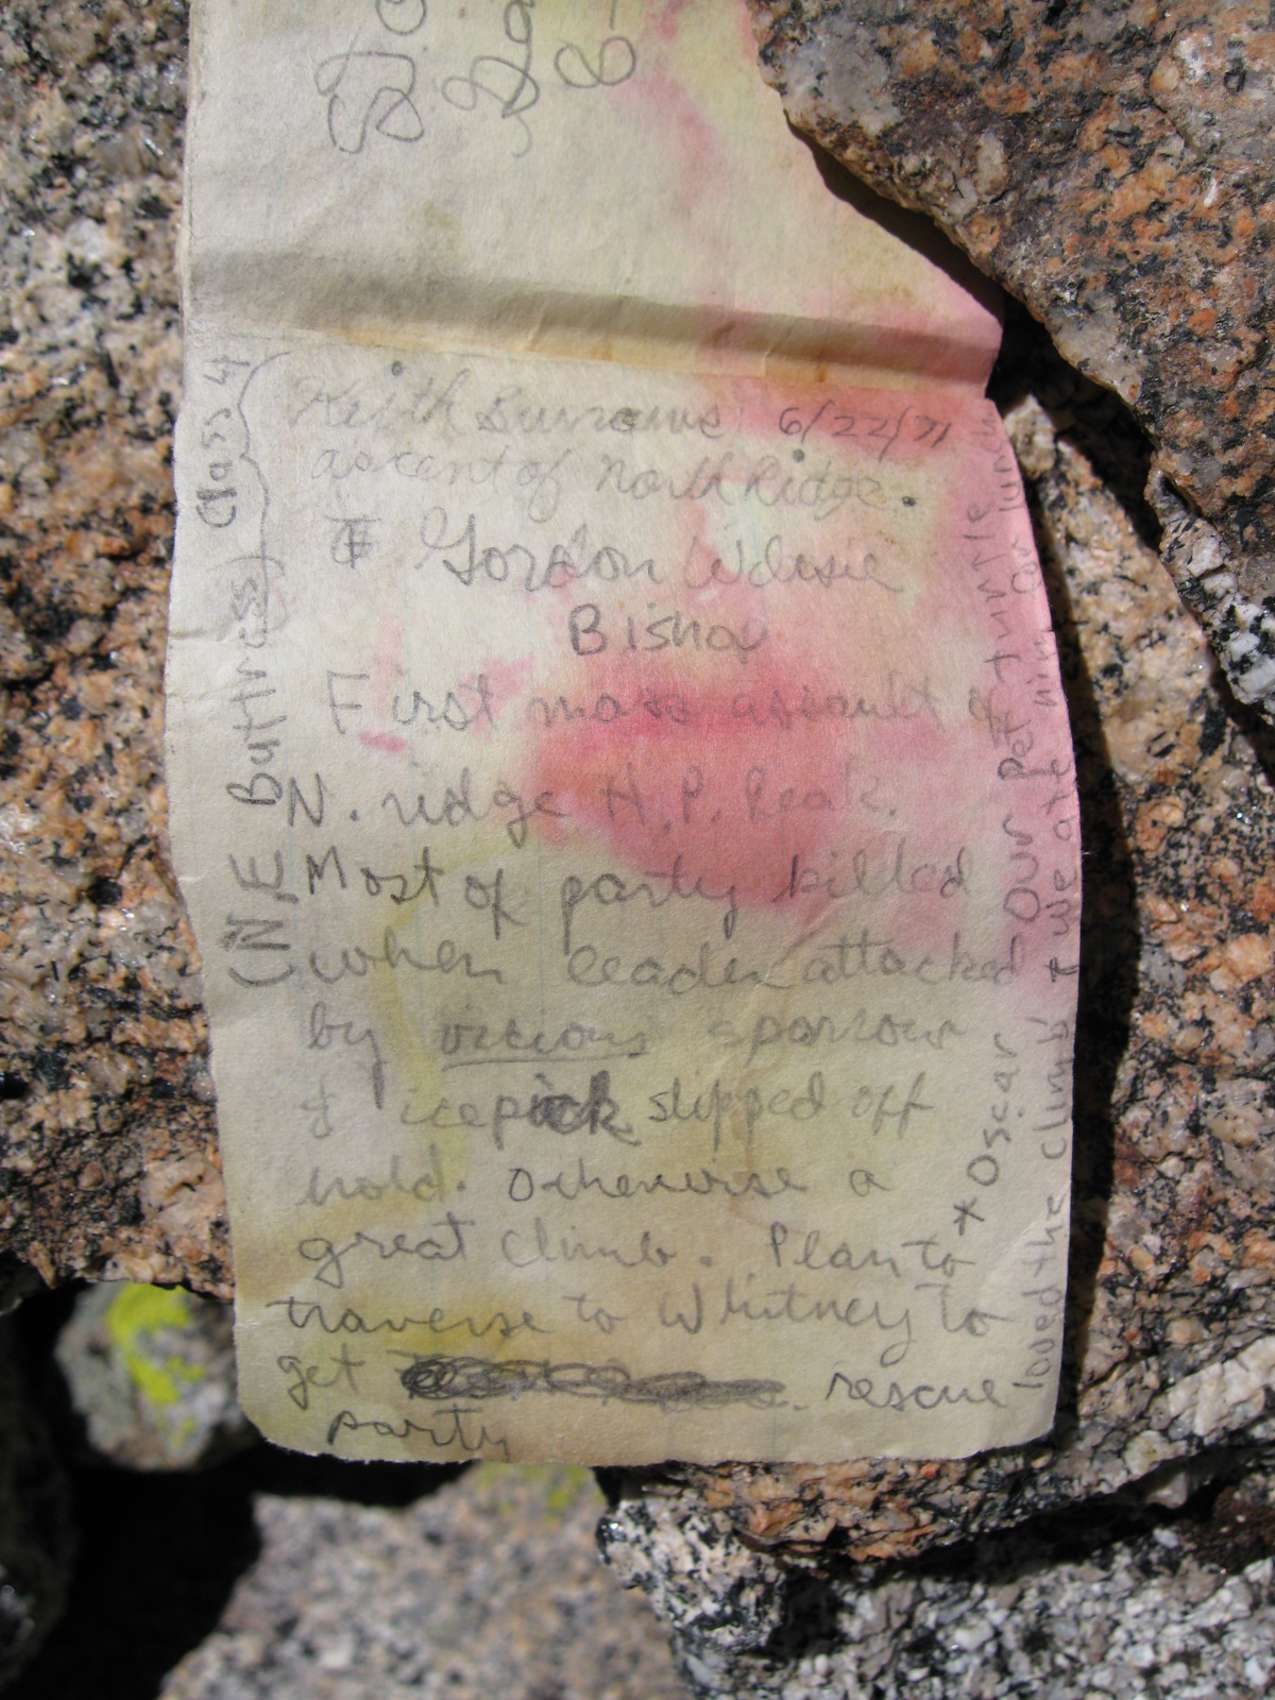 Keith Burrows 6/22/71
ascent of North Ridge.
Gordon Wiltsie
Bishop
First mass assault of
N. ridge H.P. Peak.
Most of party killed
when leader attacked
by vicious sparrow
& icepick slipped off
hold. Otherwise a
great climb. Plan to
traverse to Whitney to
get rescue
party
(N.E. Buttress) Class 4
* Oscar Our pet turtle
loved the climb & we ate him for lunch